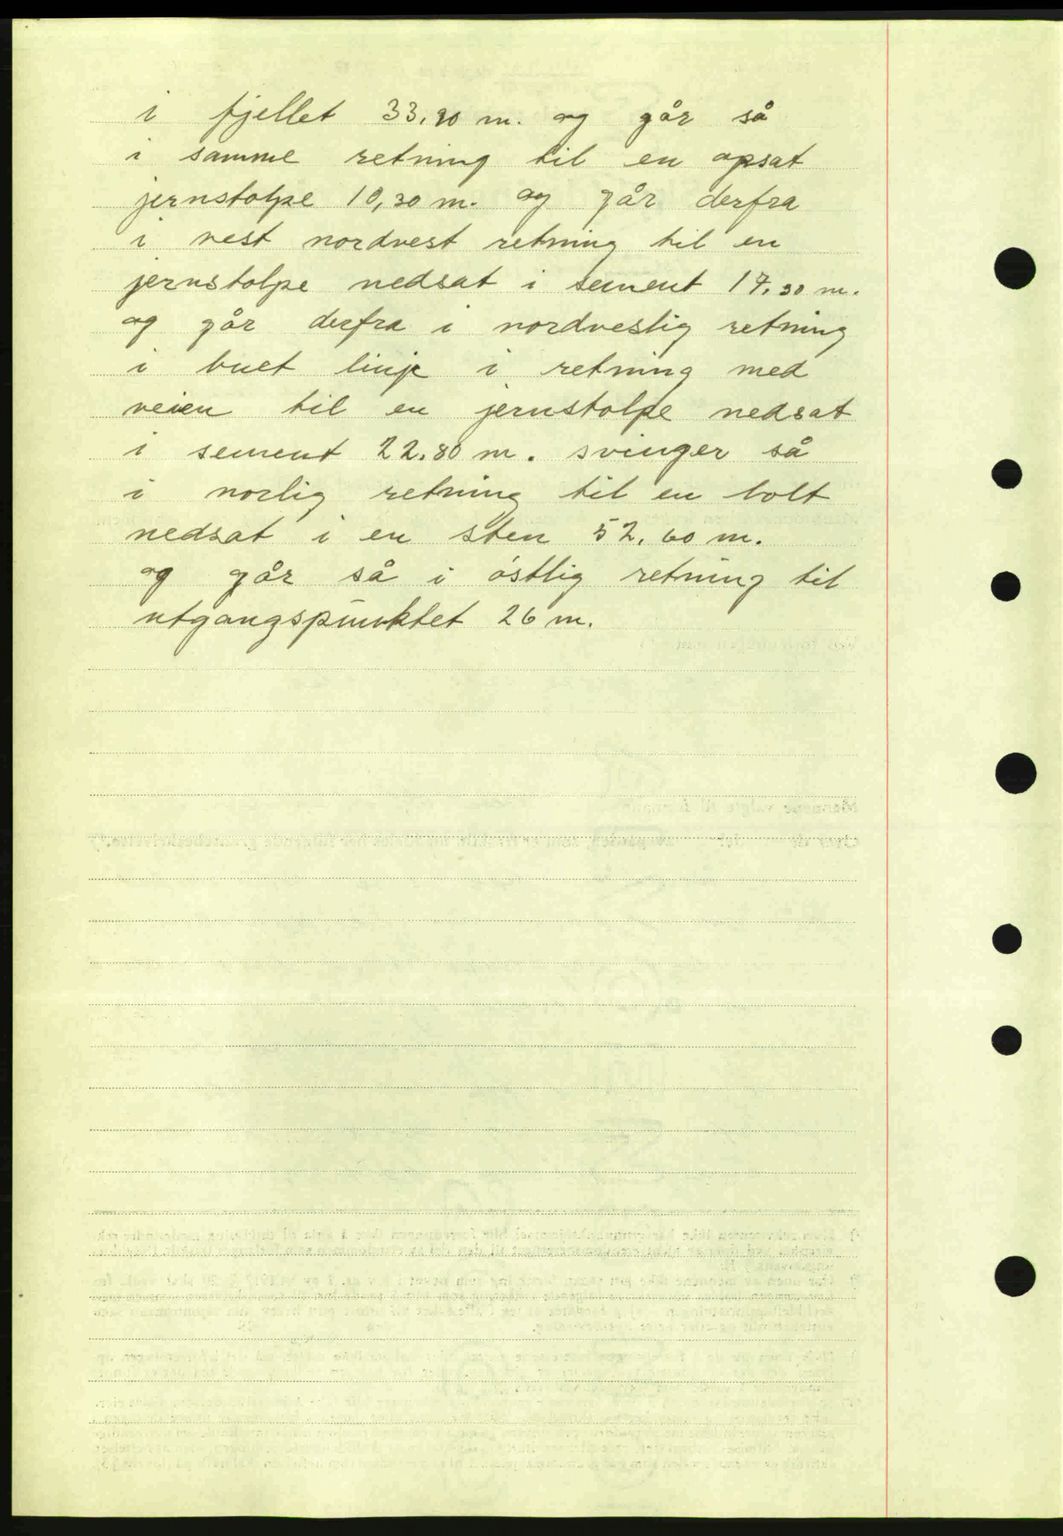 i fjellet 33,90 m. og går så
i samme retning til en opsat
jernstolpe 10,30 m. og går derfra
i vest nordvest retning til en
jernstolpe nedsat i sement 17,30 m.
og går derfra i nordvestlig retning
i buet linje i retning med
veien til en jernstolpe nedsat
i sement 22.80 m. svinger så
i norlig retning til en bolt
nedsat i en sten 52,60 m.
og går så i östlig retning til
utgangspunktet 26 m.